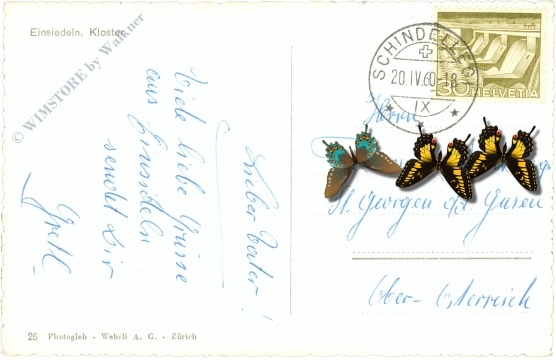 Einsiedeln. Kloster
© WIMSTORE by Walkner
Lieber Vater!
Viele liebe Grüsse
aus Einsiedeln
sendet Dir
Gretl.
SCHINDELLEGI
20.IV.60-18
IX
30 HELVETIA
Herrn
St. Georgen a.d. Gusen
Ober-Österreich
26 Photoglob - Wehrli A. G. - Zürich